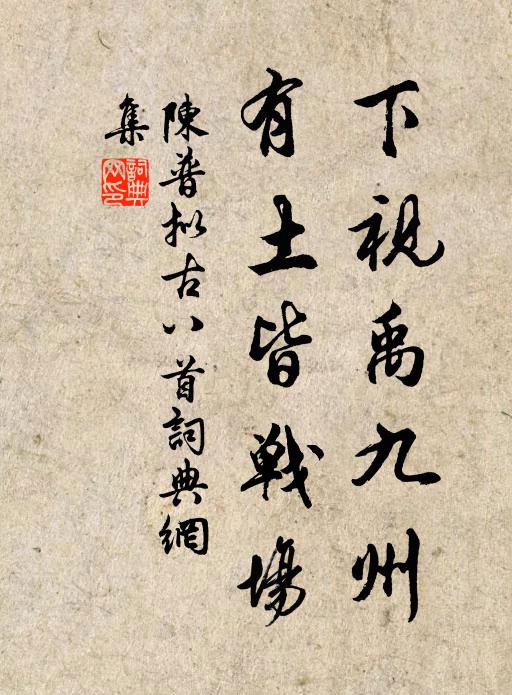 下視禹九州
有土皆戰場
陳普拟古八首詞典網
集
詞典
网印